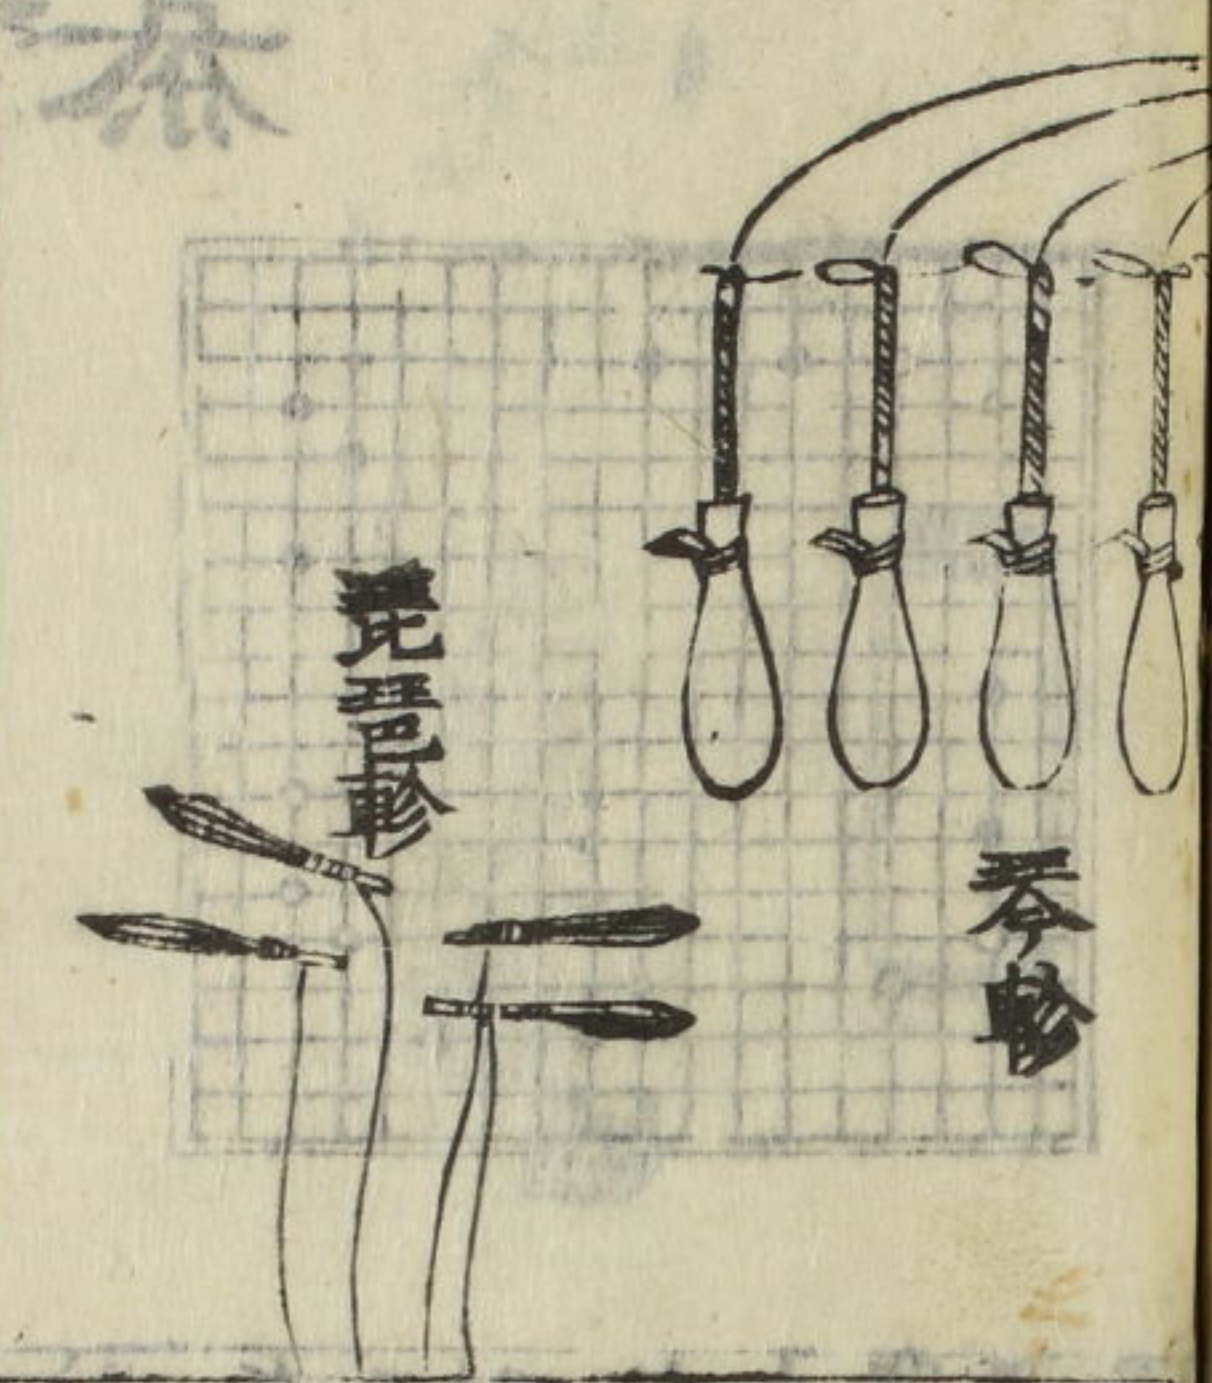 琴軫
琵琶軫